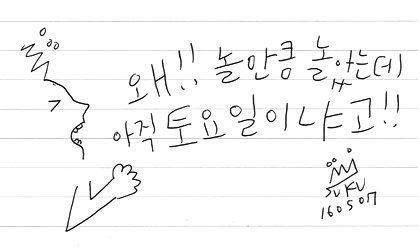 왜!! 놀만큼 놀았는데
아직 토요일이냐고!!
SUKU
160507